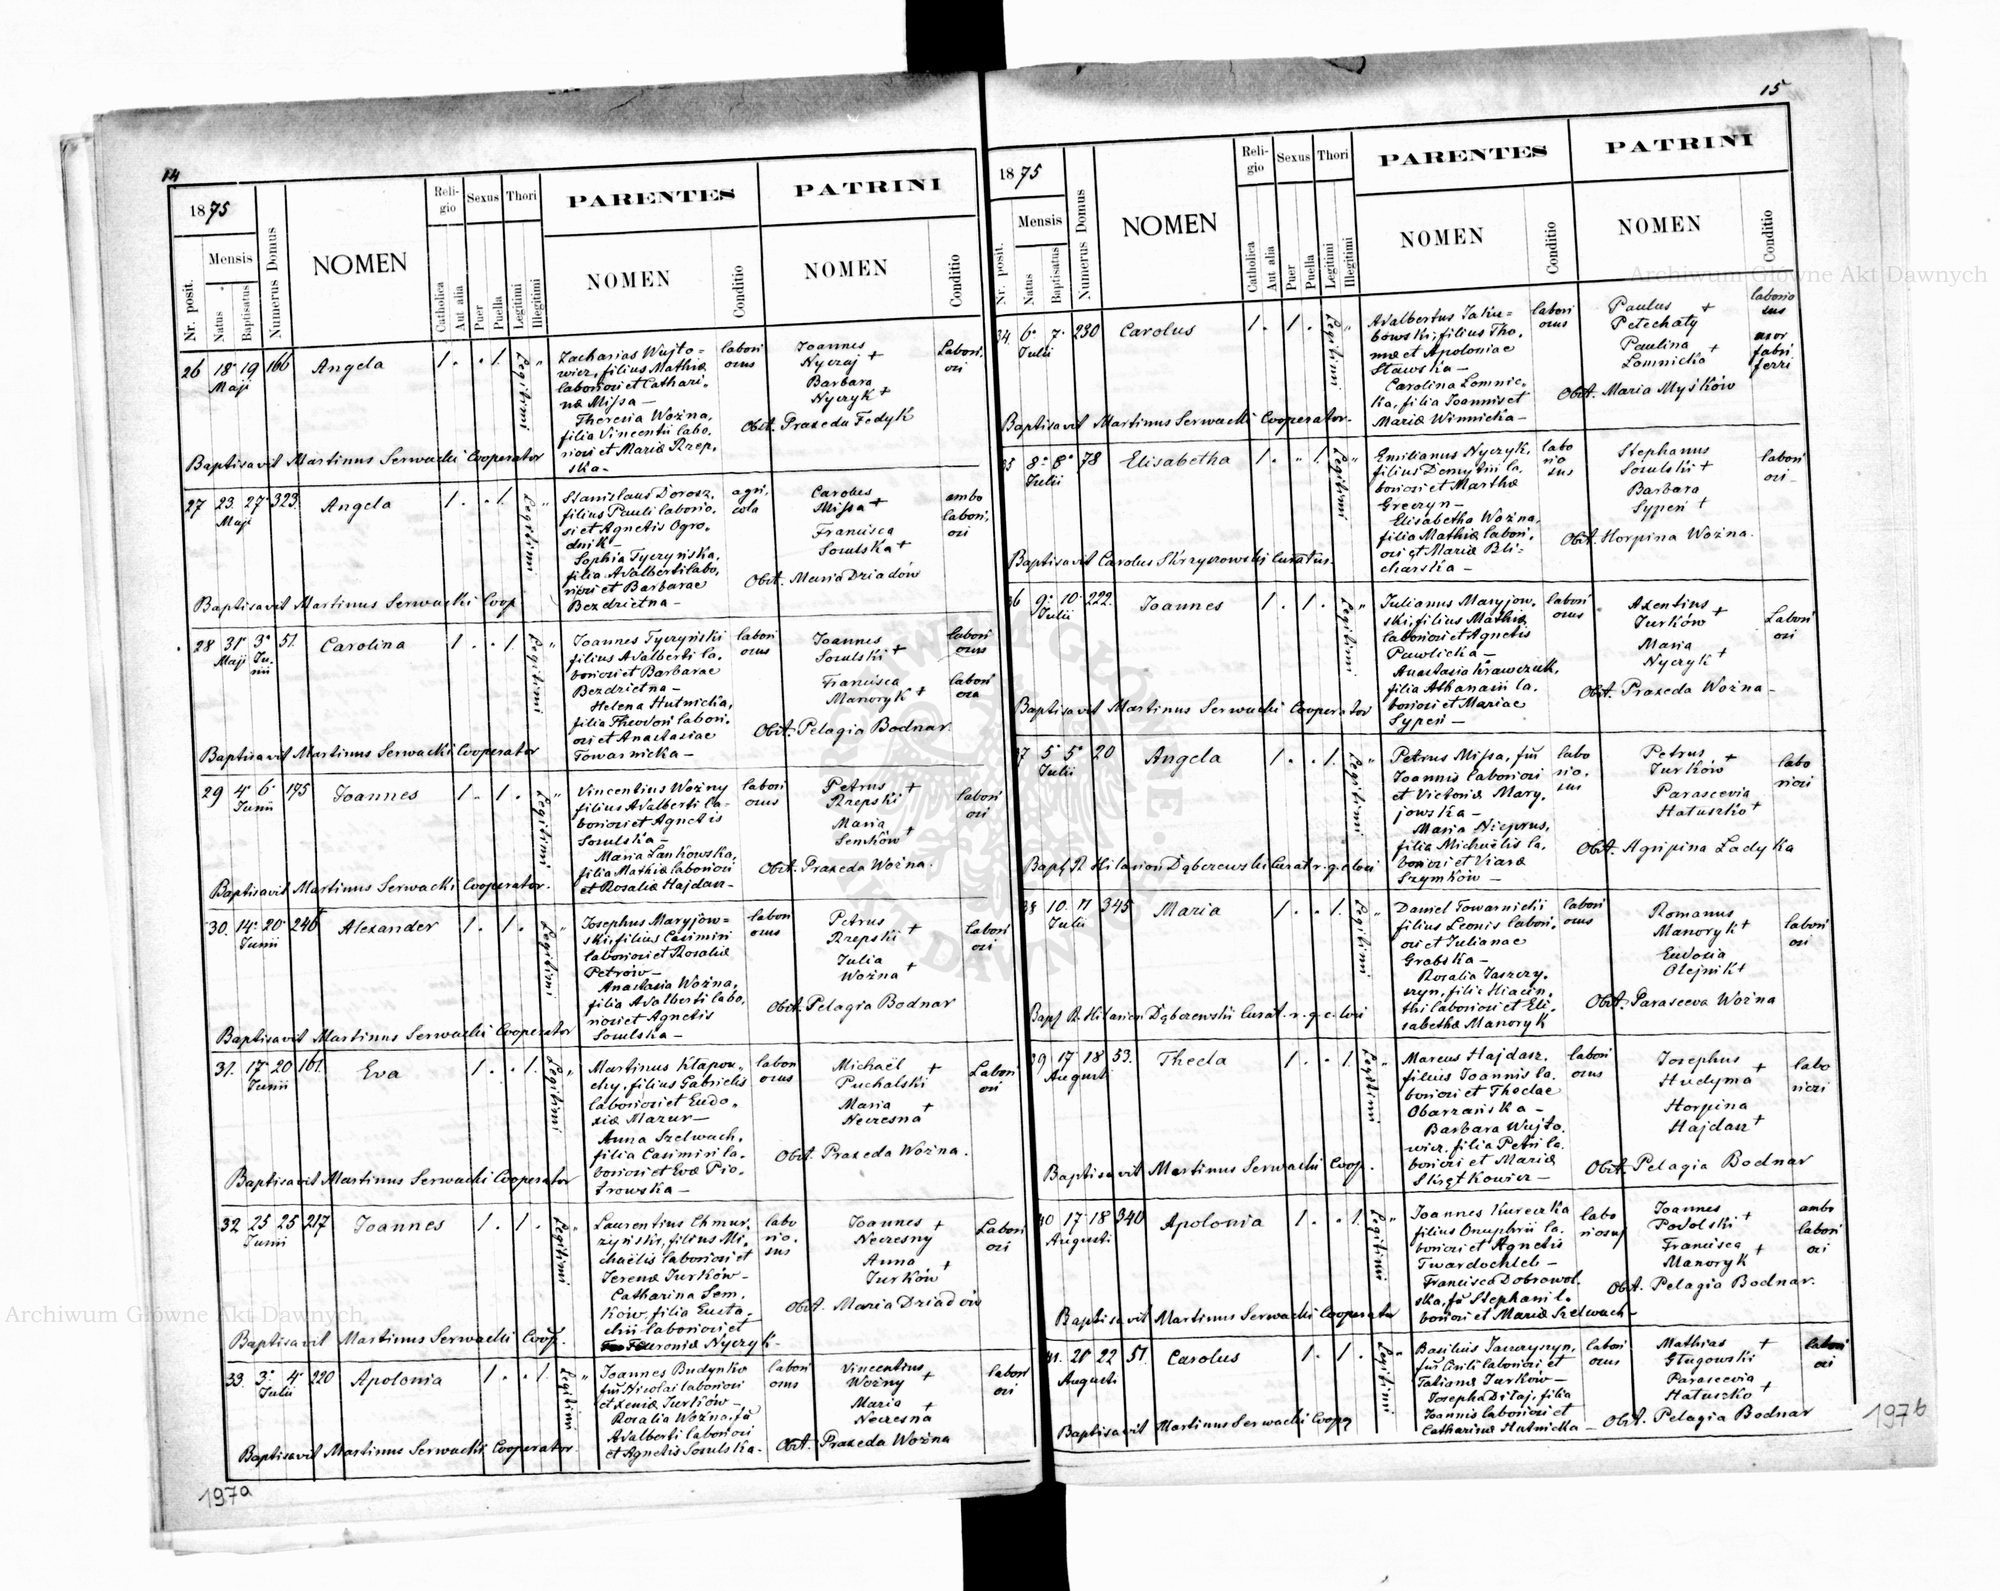 14
1875
Nr. posit.
Mensis
Natus
Baptisatus
Numerus Domus
NOMEN
Religio
Catholica
Aut alia
Sexus
Puer
Puella
Thori
Legitimi
Illegitimi
PARENTES
NOMEN
Conditio
PATRINI
NOMEN
Conditio
26 18 19 166 Angela 1 . . 1. Legitimi "
Maji
Zacharias Wujto=
wicz, filius Mathiæ
laboriosi et Cathari=
næ Missa —
Theresia Woźna,
filia Vincentii labo,
riosi et Mariæ Rzep,
ska —
labori
osus
Joannes
Nyczaj +
Barbara
Nyczyk +
Labori,
osi
Obst. Praxeda Fedyk
Baptisavit Martinus Serwacki Cooperator
27 23. 27. 323. Angela 1. . 1. Legitimi "
Maji
Stanislaus Dorosz,
filius Pauli laborio,
si et Agnetis Ogro,
dnik —
Sophia Tyczyńska,
filia Adalberti labo,
riosi et Barbarae
Bezdzietna —
agri,
cola
Carolus
Missa +
Francisca
Sosulska +
ambo
labori,
osi
Obst. Maria Dziadów
Baptisavit Martinus Serwacki Coop
28 31 3 51. Carolina 1 . . 1. Legitimi "
Maji Ju,
nii
Joannes Tyczyński
filius Adalberti la,
boriosi et Barbarae
Bezdzietna —
Helena Hutnicka,
filia Theodori labori,
osi et Anastasiae
Towarnicka —
labori
osus
Joannes
Sosulski +
Francisca
Manoryk +
labori
osus
labori
osa
Obst. Pelagia Bodnar
Baptisavit Martinus Serwacki Cooperator
29 4 6 175 Joannes 1. . 1. . Legitimi "
Junii
Vincentius Woźny
filius Adalberti la=
boriosi et Agnetis
Sosulska —
Maria Lankowska,
filia Mathiæ laboriosi
et Rosaliæ Hajdasz —
labori
osus
Petrus +
Rzepski
Maria
Semków +
labori
osi
Obst. Praxeda Woźna.
Baptisavit Martinus Serwacki Cooperator.
30. 14 20 246 Alexander 1. . 1. . Legitimi "
Junii
Josephus Maryjow=
ski, filius Casimiri
laboriosi et Rosaliæ
Petrów —
Anastasia Woźna,
filia Adalberti labo,
riosi et Agnetis
Sosulska —
labori
osus
Petrus
Rzepski +
Julia
Woźna +
labori
osi
Obst. Pelagia Bodnar
Baptisavit Martinus Serwacki Cooperator
31. 17 20 161. Eva 1. . . 1. Legitimi "
Junii
Martinus Kłapou,
chy, filius Gabrielis
laboriosi et Eudo,
xiæ Mazur —
Anna Szelwach,
filia Casimiri la,
boriosi et Evæ Pio,
trowska —
labori
osus
Michaël +
Puchalski
Maria +
Neczesna
Labori
osi
Obst. Praxeda Woźna.
Baptisavit Martinus Serwacki Cooperator
32. 25 25 217 Joannes 1. . 1. . Legitimi "
Junii
Laurentius Chmur,
zyński, filius Mi,
chaëlis laboriosi et
Terenæ Turków —
Catharina Sem,
ków, filia Eusta,
chii laboriosi et
Feroniæ Nyczyk —
labo
rio.
sus
Joannes +
Neczesny
Anna +
Turków
Labori
osi
Obst. Maria Dziadów
Baptisavit Martinus Serwacki Coop.
33. 3 4 220 Apolonia 1. . . 1. Legitimi "
Julii
Joannes Budynko
fil Nicolai laboriosi
et Xeniæ Turków —
Rosalia Woźna, fil
Adalberti laboriosi
et Agnetis Sosulska —
labori
osus
Vincentius +
Woźny
Maria +
Neczesna
labori
osi
Obst. Praxeda Woźna
Baptisavit Martinus Serwacki Cooperator.
197a
15
1875
Nr. posit.
Mensis
Natus
Baptisatus
Numerus Domus
NOMEN
Religio
Catholica
Aut alia
Sexus
Puer
Puella
Thori
Legitimi
Illegitimi
PARENTES
NOMEN
Conditio
PATRINI
NOMEN
Conditio
34 6 7 230 Carolus 1. . 1. . Legitimi "
Julii
Adalbertus Jaku=
bowski, filius Tho,
mæ et Apoloniae
Stawska —
Carolina Lomnic,
ka, filia Joannis et
Mariæ Winnicka —
labori
osus
Paulus +
Petechaty
Paulina +
Lomnicka
laborio
sus
uxor
fabri
ferri
Obst. Maria Myśków
Baptisavit Martinus Serwacki Cooperator.
35 8 8 78 Elisabetha 1. . " 1. Legitimi "
Julii
Emilianus Nyczyk,
filius Demytrii la,
boriosi et Marthæ
Greczyn —
Elisabetha Woźna,
filia Mathiæ labori,
osi et Mariæ Bli=
charska —
labo
rio
sus
Stephanus
Sosulski +
Barbara
Sypeń +
labori
osi
Obst. Horpina Woźna.
Baptisavit Carolus Skrzyszowski Curatus.
36 9 10 222. Joannes 1. . 1. . Legitimi "
Julii
Julianus Maryjow,
ski, filius Mathiæ
laboriosi et Agnetis
Pawlicka —
Anastasia Krawczuk,
filia Athanasii la,
boriosi et Mariae
Sypeń —
labori
osus
Axentius
Turków +
Maria
Nyczyk +
Labori
osi
Obst. Praxeda Woźna —
Baptisavit Martinus Serwacki Cooperator
37 5 5 20 Angela 1. . . 1. Legitimi "
Julii
Petrus Missa, fil
Joannis laboriosi
et Victoriæ Mary,
jowska —
Maria Nieprus,
filia Michaëlis la,
boriosi et Viaræ
Szymków —
labo
rio.
sus
Petrus
Turków +
Parascevia
Hatuszko +
labo
riosi
Obst. Agripina Ladyka
Bapt. R. Hilarion Dąbczewski Curat r. g. c. loci
38 10. 11 345 Maria 1. . . 1. Legitimi "
Julii
Daniel Towarnicki
filius Leonis labori,
osi et Julianae
Grabska —
Rosalia Jaszczy,
szyn, filia Hiacin,
thi laboriosi et Eli,
sabethæ Manoryk
labori
osus
Romanus
Manoryk +
Eudoxia
Olejnik +
labori
osi
Obst. Parasceva Woźna
Bapt. R. Hilarion Dąbczewski Curat. r. g. c. loci
39 17 18 53. Thecla 1. . . 1. Legitimi "
Augusti
Marcus Hajdasz,
filius Joannis la,
boriosi et Theclae
Obarzańska —
Barbara Wujto,
wicz, filia Petri la,
boriosi et Mariæ
Slizętkowicz —
labori
osus
Josephus +
Hudyma
Horpina
Hajdasz +
labo
riosi
Obst. Pelagia Bodnar
Baptisavit Martinus Serwacki Coop.
40 17 18 340 Apolonia 1. . . 1. Legitimi "
Augusti
Joannes Kureczka
filius Onuphrii la,
boriosi et Agnetis
Twardochleb —
Francisca Dobrowol,
ska, fil Stephani l.
boriosi et Mariæ Szelwach —
labo
riosus
Joannes +
Podolski
Francisca +
Manoryk
ambo
labori
osi
Obst. Pelagia Bodnar.
Baptisavit Martinus Serwacki Cooperator
41. 20 22 51. Carolus 1. . 1. . Legitimi "
Augusti
Basilius Jaszczyszyn,
fil Cirili laboriosi et
Tatianæ Turków —
Josepha Ditaj, filia
Joannis laboriosi et
Catharinæ Hutnicka —
labori
osus
Mathias +
Gługowski
Parascevia
Hatuszko +
labori
osi
Obst. Pelagia Bodnar
Baptisavit Martinus Serwacki Coop
197b
Archiwum Główne Akt Dawnych
Archiwum Główne Akt Dawnych
ARCHIWUM GŁÓWNE AKT DAWNYCH